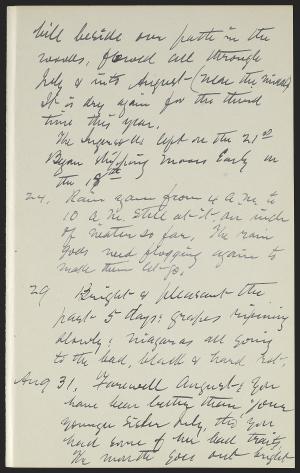 hill beside our path in the
woods, flowed all through
July & into August (near the middle)
It is dry again for the third
time this year.
The Ingersolls left on the 21st
Began shipping Moores Early on
the 18th
24. Rain again from 4 A.M. to
10 A.M. Still at it, an inch
of water so far, The rain
gods need flogging again to
make them let go.
29 Bright & pleasant the
past 5 days; grapes ripening
slowly; niagaras all going
to the bad, black & hard rot.
Aug 31. Farewell August; you
have been better than your
younger sister July, tho you
had some of her bad traits,
The month goes out bright